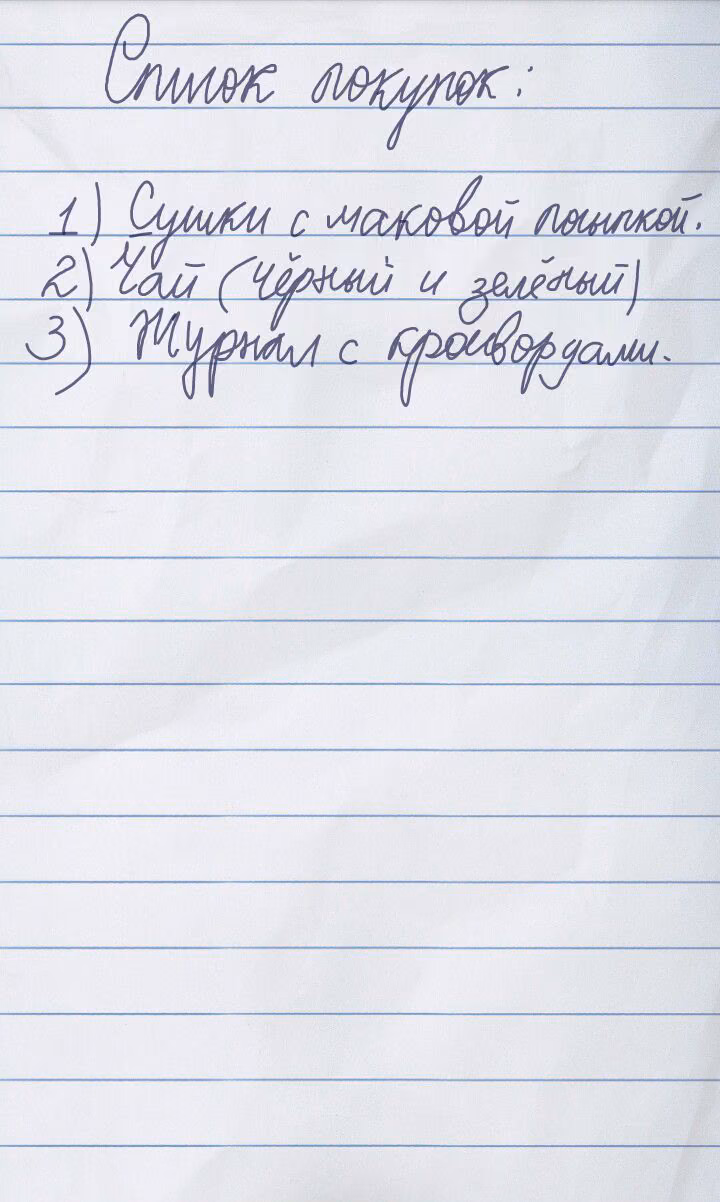 Список покупок:
1) Сушки с маковой посыпкой.
2) Чай (чёрный и зелёный)
3) Журнал с кроссвордами.